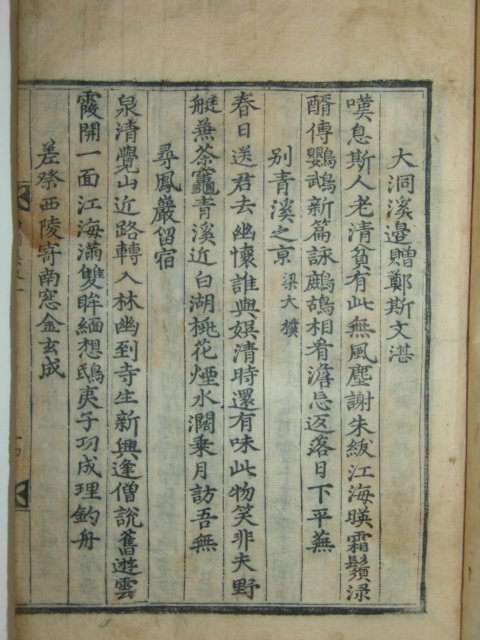 大洞溪邊贈鄭斯文湛
嘆息斯人老清貧有此無風塵謝朱紱江海暎霜鬚淥
醑傳鸚鵡新篇詠鷓鴣相看澹忘返落日下平蕪
別青溪之京 梁大樸
春日送君去幽懷誰與娯清時還有味此物笑非夫野
艇蒹茶竈青溪近白湖桃花煙水濶乗月訪吾無
尋鳳嚴留宿
泉清覺山近路轉入林幽到寺生新興逢僧說舊遊雲
霞開一面江海滿雙眸緬想鴟夷子功成理釣舟
差祭西陵寄南窓金玄成